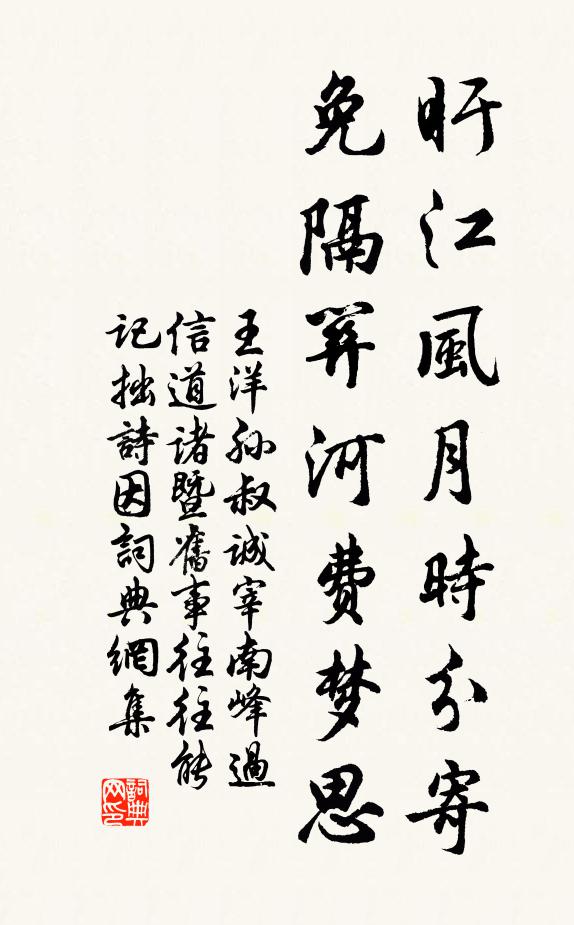 盱江風月時分寄
免隔關河費梦思
王洋孙叔诚宰南峰過
信道诸暨舊事往往能
记拙詩因詞典網集
詞典网印